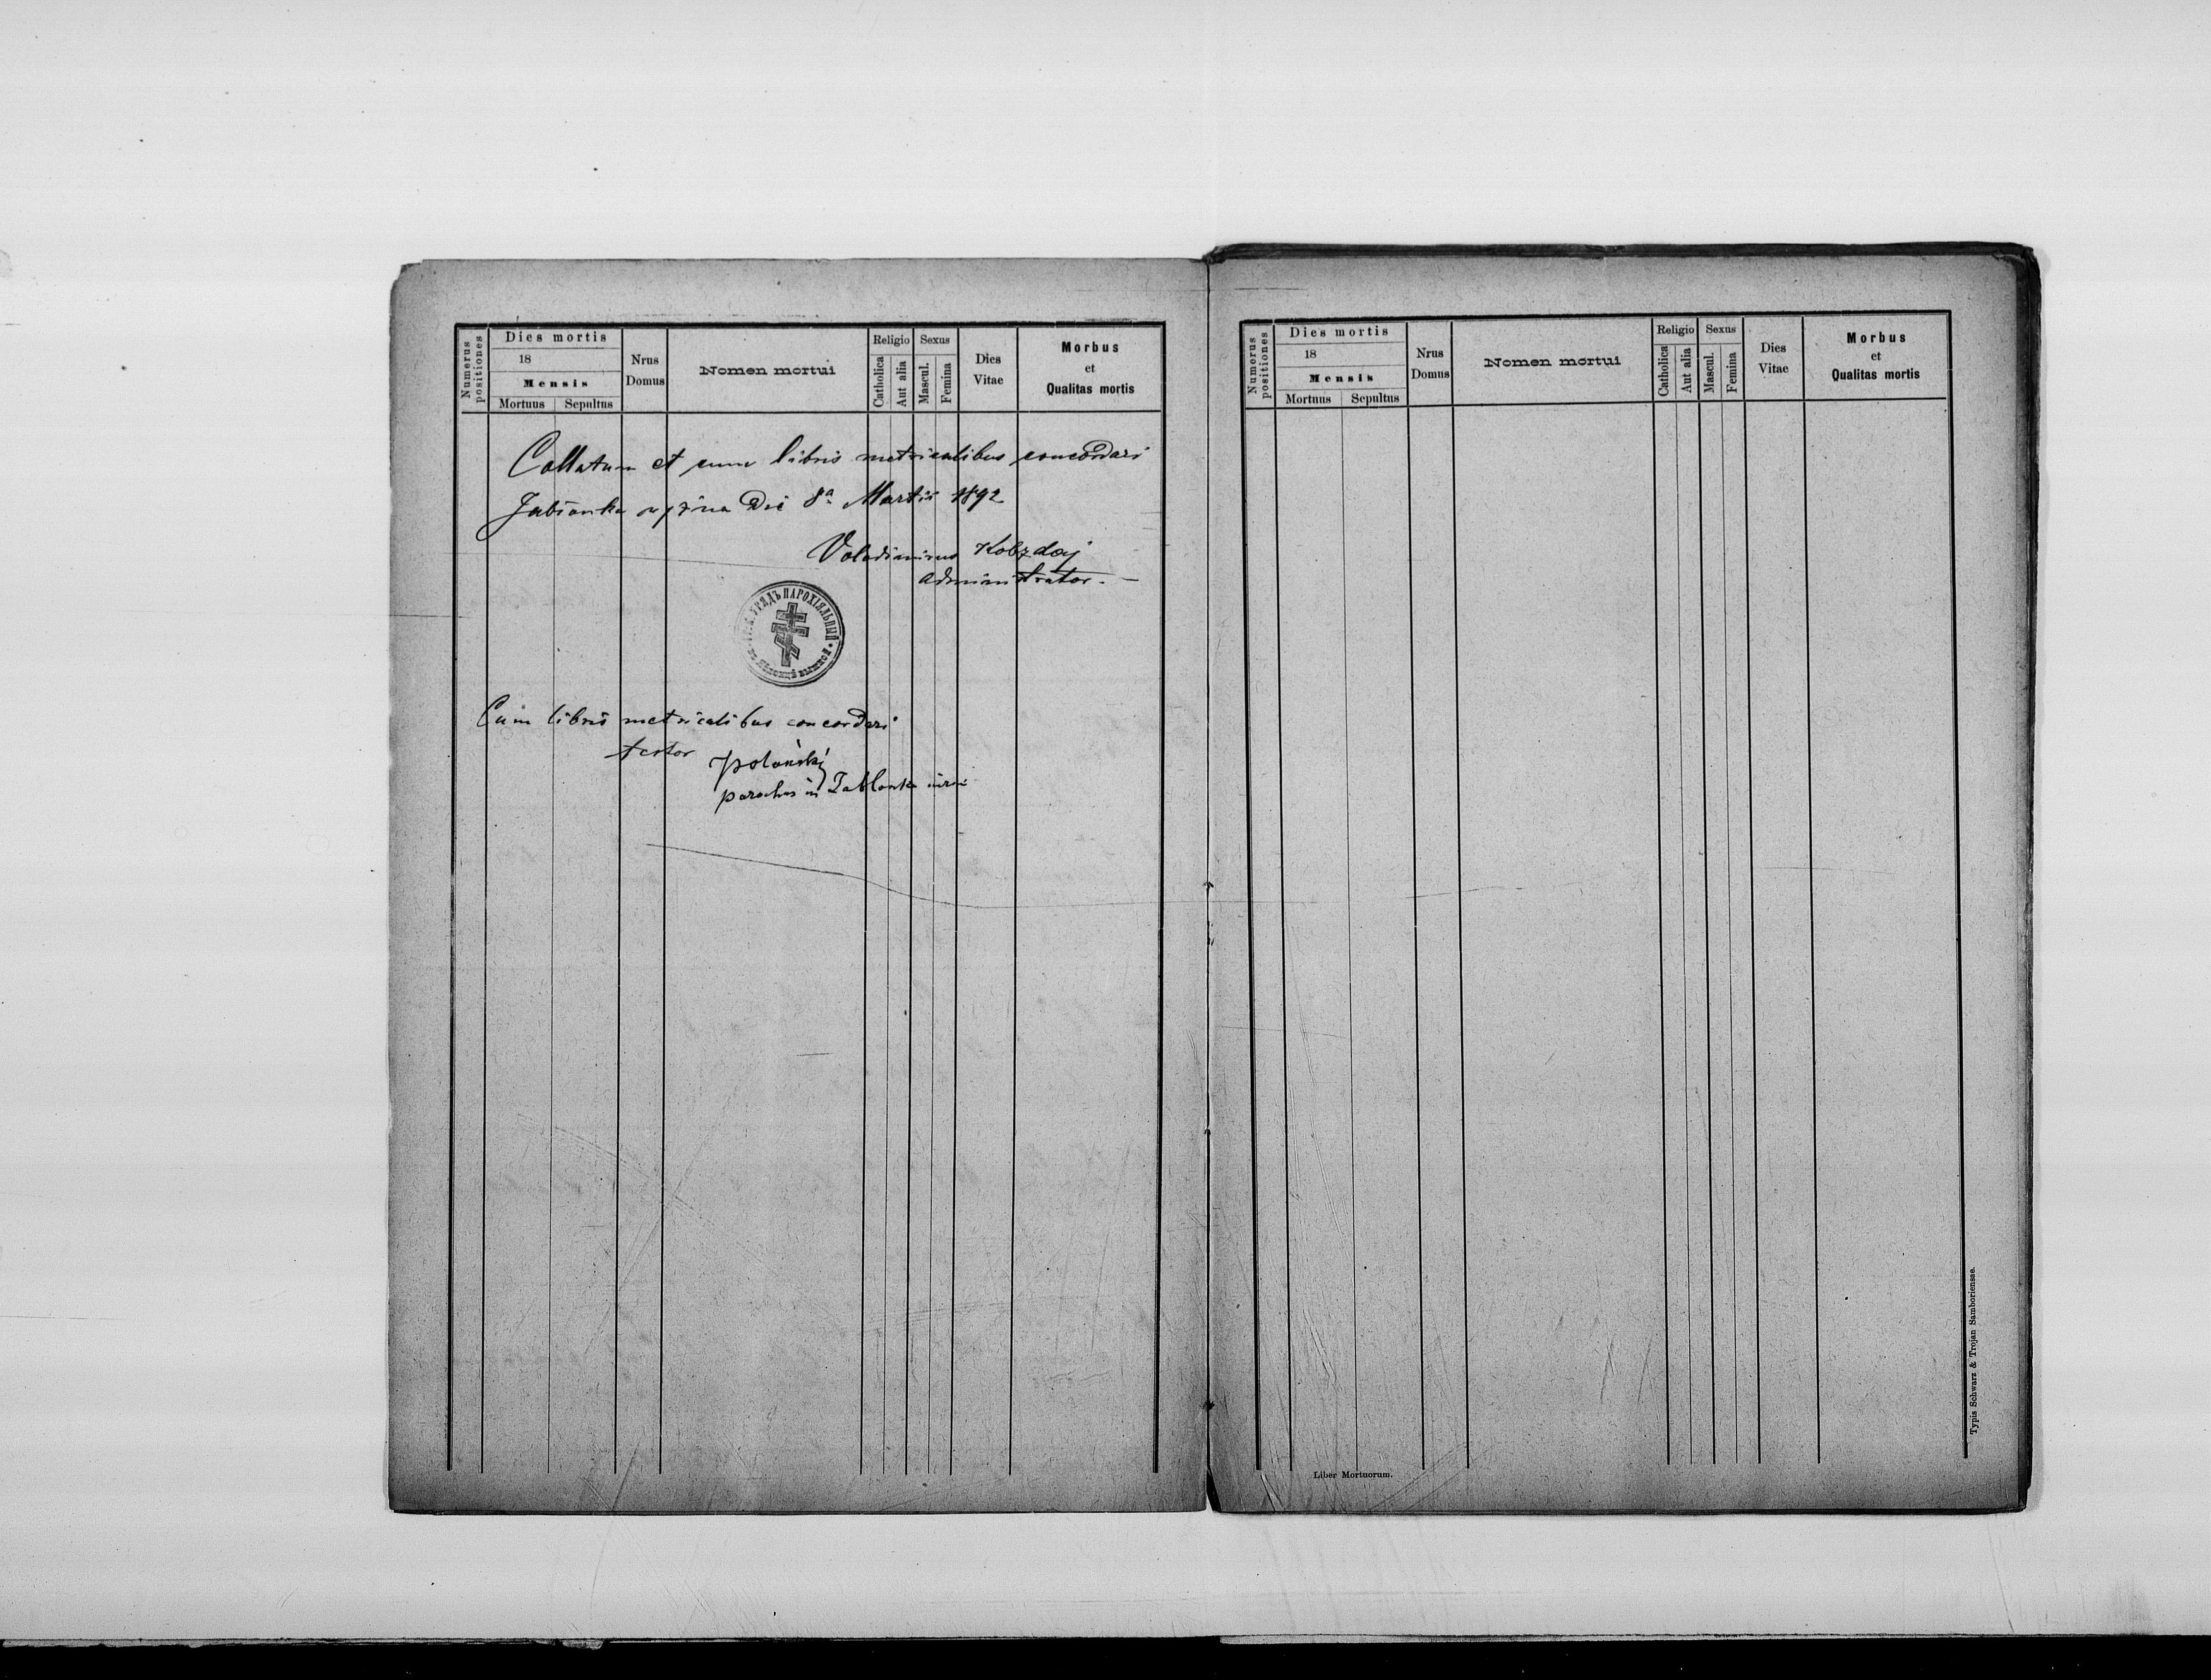 Numerus positiones
Dies mortis
18
Mensis
Mortuus Sepultus
Nrus Domus
Nomen mortui
Religio
Catholica
Aut alia
Sexus
Mascul.
Femina
Dies Vitae
Morbus
et
Qualitas mortis
Collatum et cum libris metricalibus concordari
Jabłonka Die 8ª Martii 1892
Volodimirus Kobzdaj
administrator. —
УРЯДЪ ПАРОХІЯЛЬНЫЙ
Cum libris metricalibus concordari
testor
Polański
parochus in Jablonka
Numerus positiones
Dies mortis
18
Mensis
Mortuus Sepultus
Nrus Domus
Nomen mortui
Religio
Catholica
Aut alia
Sexus
Mascul.
Femina
Dies Vitae
Morbus
et
Qualitas mortis
Liber Mortuorum.
Typis Schwarz & Trojan Samboriensae.